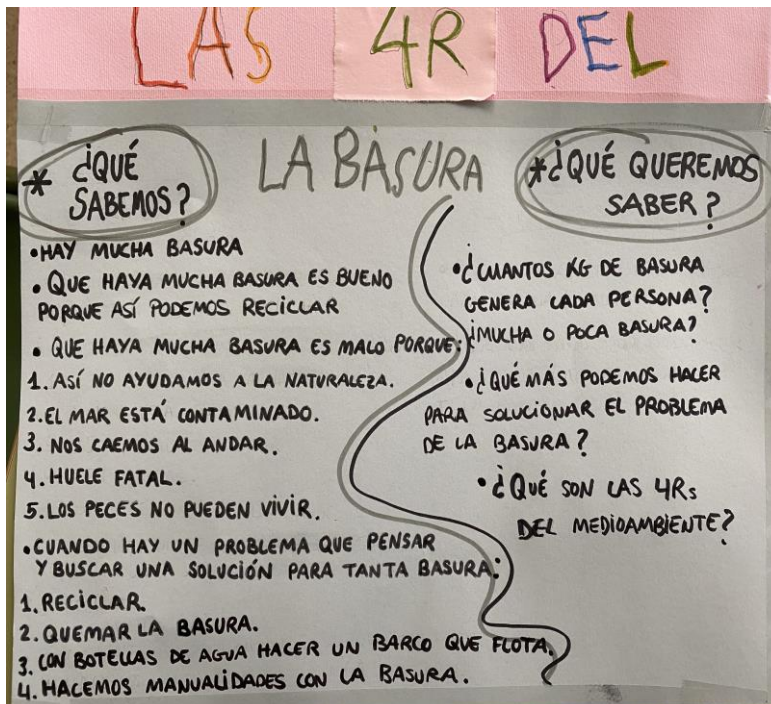 LAS 4R DEL
LA BASURA
* ¿QUÉ
SABEMOS?
•HAY MUCHA BASURA
• QUE HAYA MUCHA BASURA ES BUENO
PORQUE ASÍ PODEMOS RECICLAR
• QUE HAYA MUCHA BASURA ES MALO PORQUE:
1. ASÍ NO AYUDAMOS A LA NATURALEZA.
2. EL MAR ESTÁ CONTAMINADO.
3. NOS CAEMOS AL ANDAR.
4. HUELE FATAL.
5. LOS PECES NO PUEDEN VIVIR.
•CUANDO HAY UN PROBLEMA QUE PENSAR
Y BUSCAR UNA SOLUCIÓN PARA TANTA BASURA:
1. RECICLAR.
2. QUEMAR LA BASURA.
3. CON BOTELLAS DE AGUA HACER UN BARCO QUE FLOTA.
4. HACEMOS MANUALIDADES CON LA BASURA.
*¿QUÉ QUEREMOS
SABER?
•¿CUANTOS KG DE BASURA
GENERA CADA PERSONA?
¿MUCHA O POCA BASURA?
•¿QUÉ MÁS PODEMOS HACER
PARA SOLUCIONAR EL PROBLEMA
DE LA BASURA?
•¿QUÉ SON LAS 4Rs
DEL MEDIOAMBIENTE?